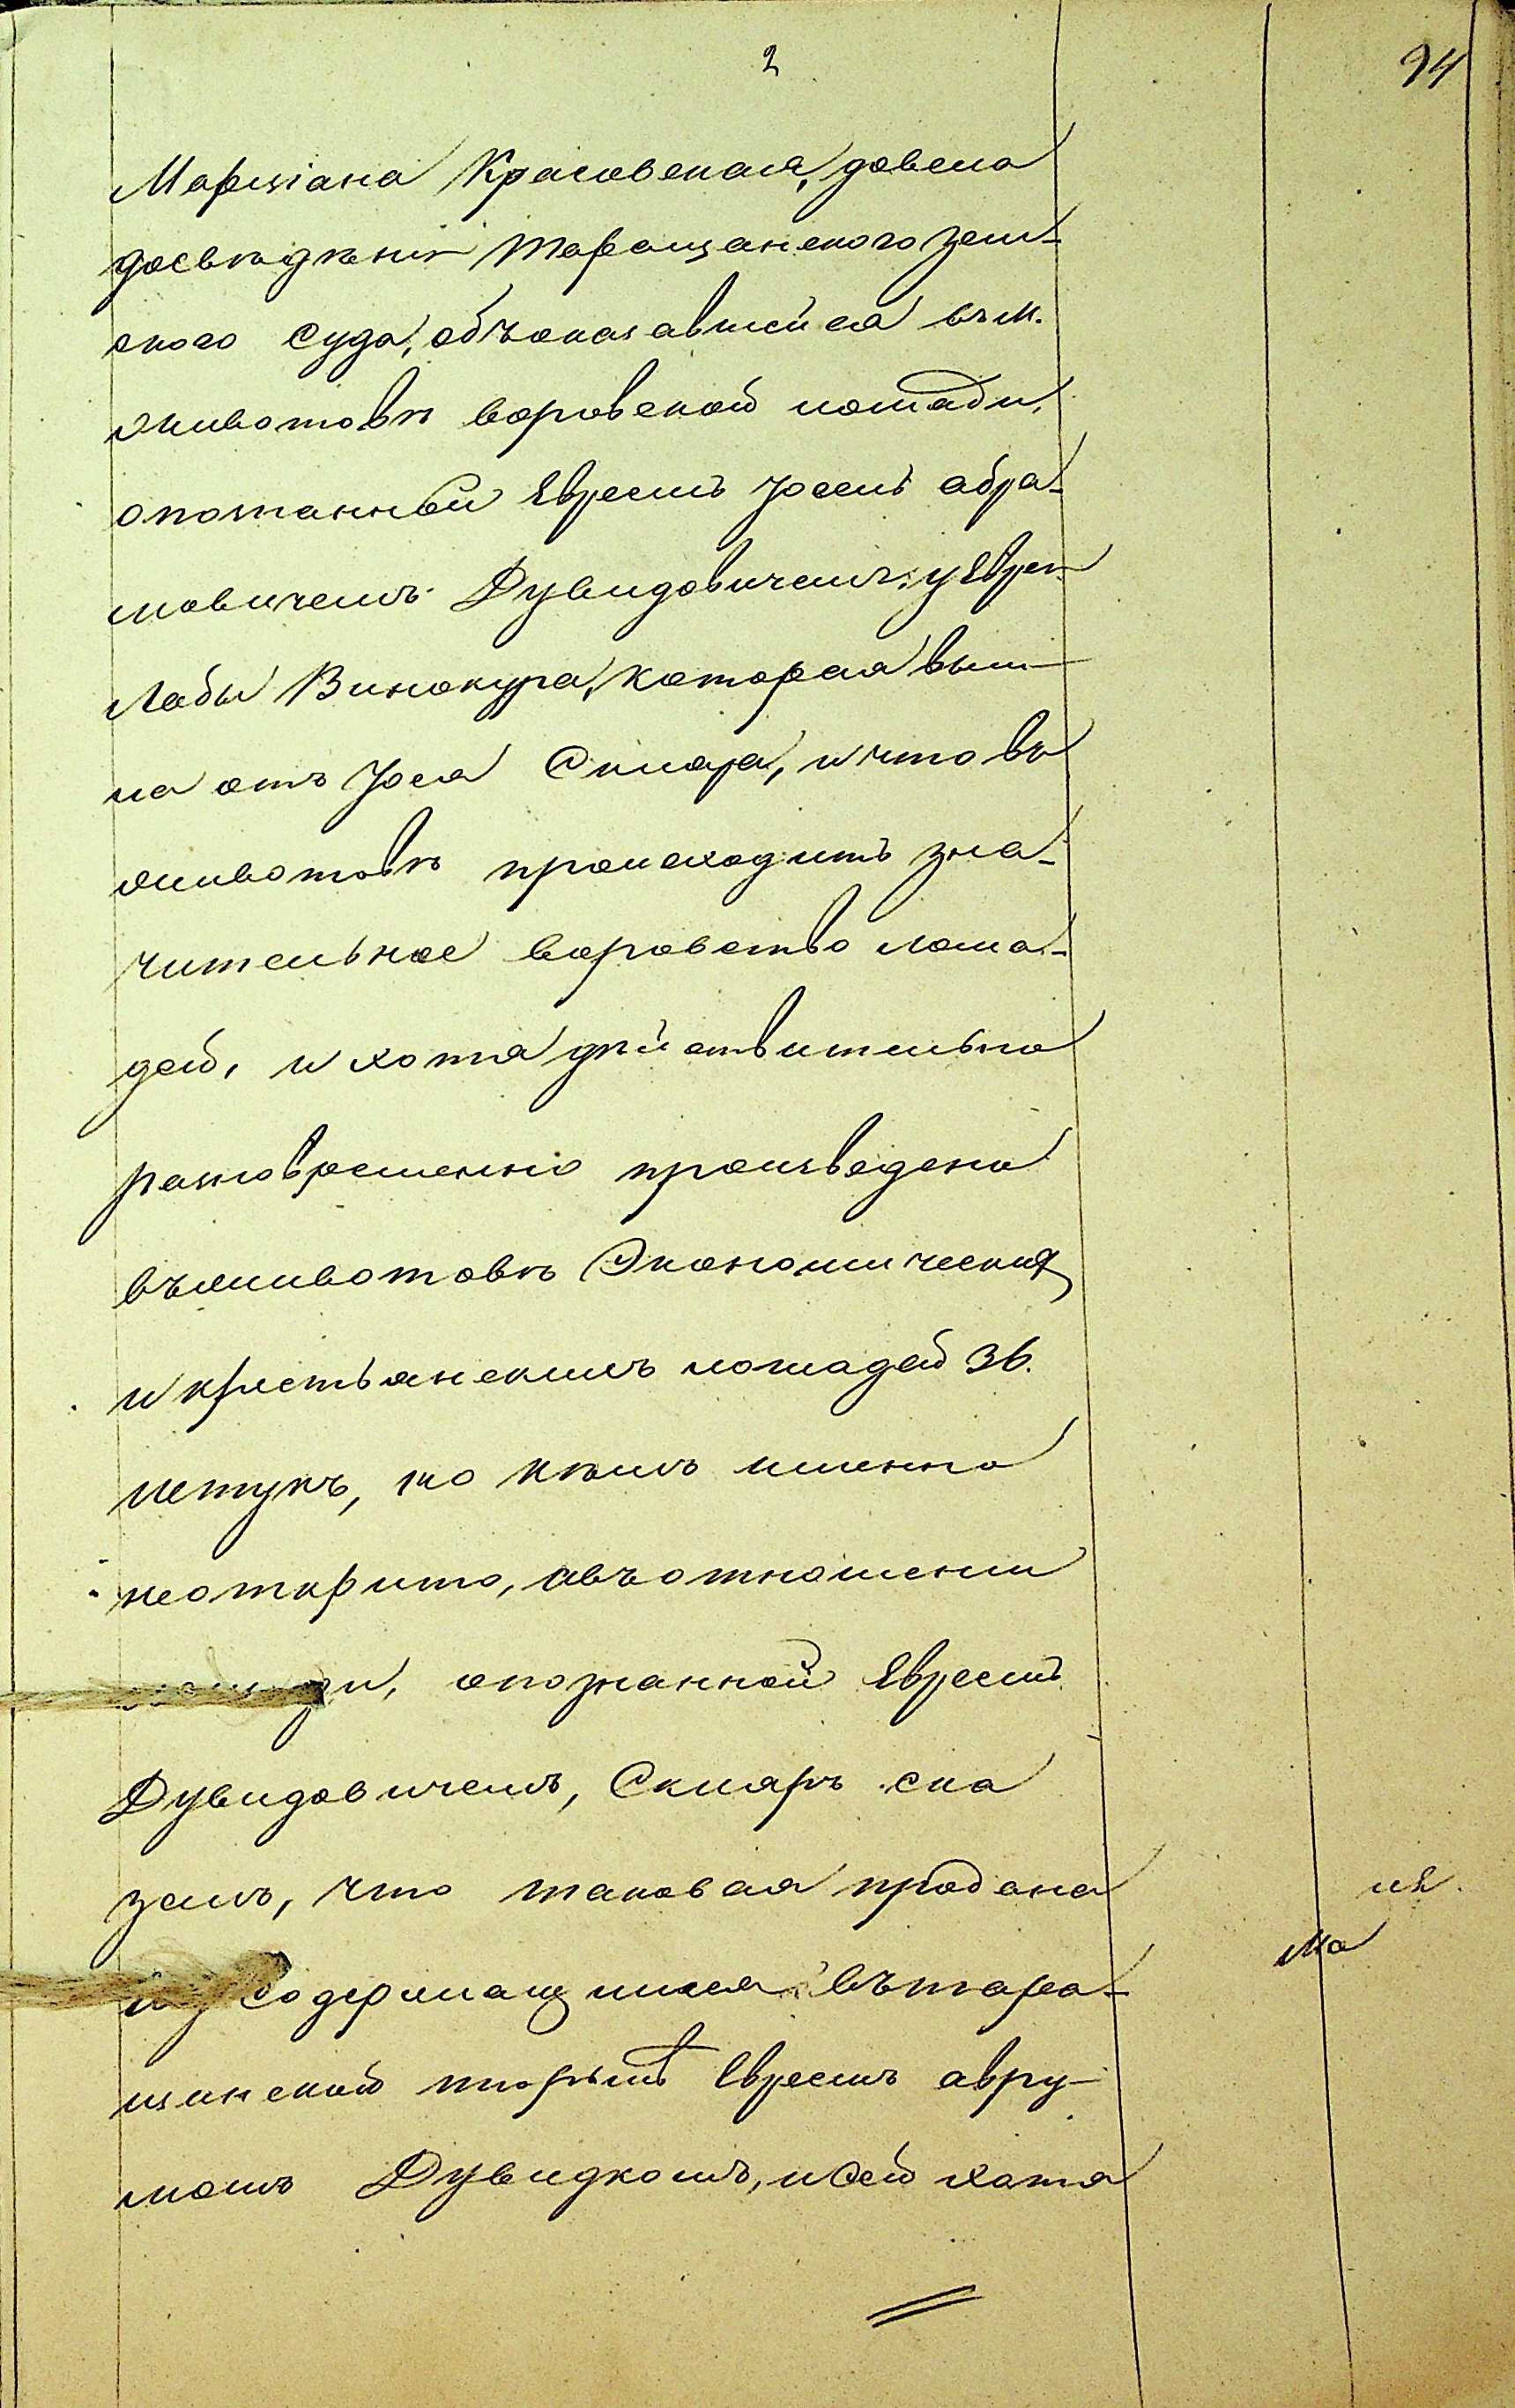 2
94
Марціана Красовская, довела
досвѣдѣнія Таращанского зем-
ского суда, объоказавшейся въ м.
животовѣ воровской лошади,
опознанной Евреемъ Іосемъ абра-
мовичемъ Дувидовичемъ, у Еврея
Лабы Винокура, которая выш-
ла отъ Іося Скляра, и что въ
животовѣ происходитъ зна-
чительное воровство лоша-
дей, и хотя дѣйствительно
разновременно произведена
въживотовѣ Экономическихъ
и крестьянскихъ лошадей 36.
штукъ, но кѣмъ именно
неоткрито, авъотношении
опознанной Евреемъ
Дувидовичемъ, Скляръ ска
залъ, что таковая продана
содержащимся въ тара-
щанской тюрьмѣ Евреемъ авру-
момъ Дувидкомъ, и сей хотя
ля.
ма